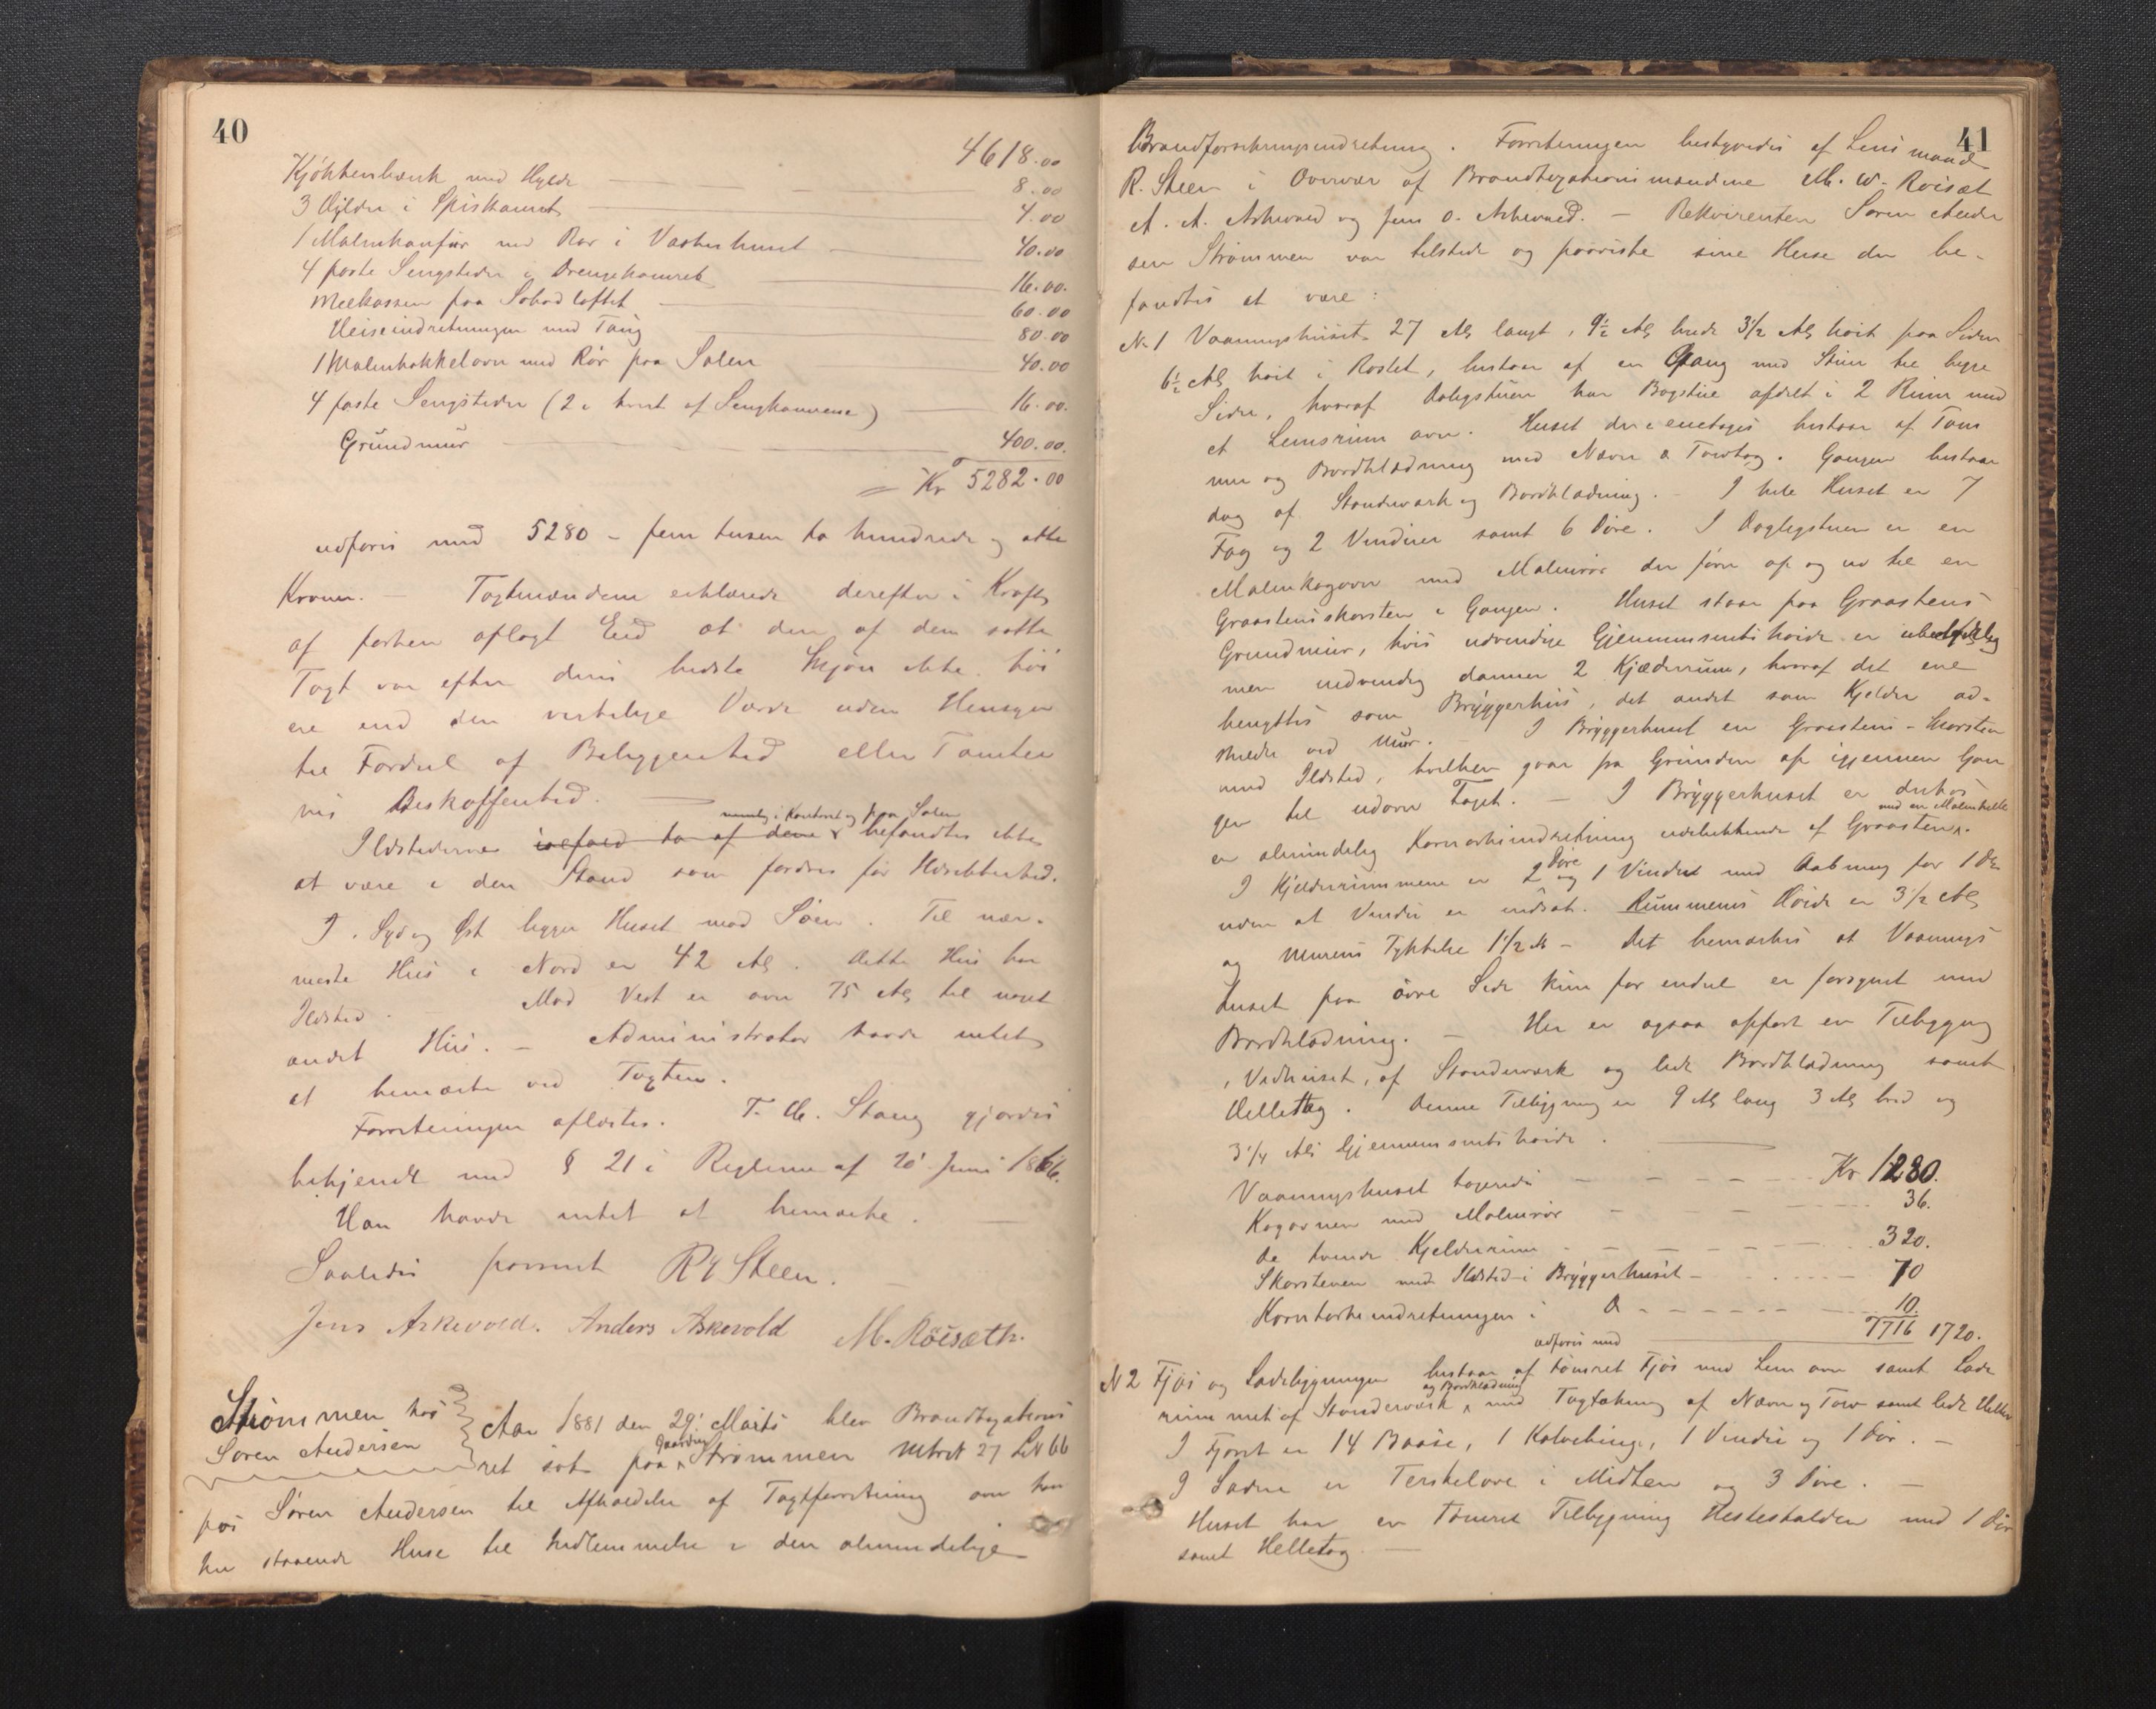 40
4618.00
Kjøkkenbænk med Hylde 8.00
3 Hylder i Spiskamret 4.00
1 Malmkamfur med Rør i Vaskerhuset 40.00
4 faste Sengsteder i Drengekamret 16.00.
Melkassen paa Sobodloftet 60.00
Heiseindretningen med Taug 80.00
1 Malmkakkelovn med Rør paa Salen 40.00
4 faste Sengsteder (2 i hvert af Sengkamrene) 16.00.
Grundmur 400.00.
= Kr 5282.00
udføres med 5280 - fem tusen to hundrede og otte
Kroner. — Taxtmændene erklærede derefter i Kraft
af forhen aflagt Eed at den af dem satte
Taxt var efter deres bedste Skjøn ikke høi
ere end den virkelige Værdi uden Hensyn
til Fordeel af Beliggenhed eller Tomten
nes Beskaffenhed. —
nemlig i Kontoret og paa Salen
Ildstederne ialfald to af dem befandtes ikke
at være i den Stand som fordres for Ildsikkerhed.
I Syd og Øst ligger Huset mod Søen. Til nær-
meste Hus i Nord er 42 Al. Dette Hus har
Ildsted. — Mod Vest er over 75 Al til noget
andet Hus. — Administrator havde intet
at bemærke ved Taxten.
Forretningen oplæstes. T. A. Stang gjordes
bekjendt med § 21 i Reglerne af 20 Juni 1866.
Han havde intet at bemærke. —
Saaledes passeret R Steen. —
Jens Askevold. Anders Askevold M. Röisæth.
Strømmen hos
Søren Andersen
Aar 1881 den 29' Marts blev Brandtaxations
Gaarden
ret sat paa Strømmen Matr N 27 LN 66
hos Søren Andersen til Afholdelse af Taxtforretning over hans
her staaende Huse til Indlemmelse i den almindelige
41
Brandforsikringsindretning. Forretningen bestyredes af Lensmand
R. Steen i Overvær af Brandtaxationsmændene M. W. Røisæt
A. A. Askevold og Jens O. Askevold. — Rekvirenten Søren Ander
sen Strømmen var tilstede og paaviste sine Huse der be-
fandtes at være:
N 1 Vaaningshuset 27 Al langt, 9½ Al brede 3½ Al høit paa Siden
6½ Al høit i Røstet, bestaar af en Gang med Stuer til begge
Sider, hvoraf Dagligstuen har Bagstue afdelt i 2 Rum med
et Lemsrum over. Huset der er eenetages bestaar af Tøm
mer og Bordklædning med Næver & Torvtag. Gangen bestaar
dog af Standerværk og Bordklædning. — I hele Huset er 7
Fag og 2 Vinduer samt 6 Døre. I Dagligstuen er en
Malmkogovn med Malmrør der fører op og ud til en
Graastensskorsten i Gangen. Huset staar paa Graastens
Grundmur, hvis udvendige Gjennemsnitshøide er ubetydelig
men indvendig danner 2 Kjælderrum, hvoraf det ene
benyttes som Bryggerhus, det andet som Kjelder ad-
skildt ved Mur. — I Bryggerhuset en Graastens-Skorsten
med Ildsted, hvilken gaar fra Grunden op igjennem Gan
gen til udover Taget. — I Bryggerhuset er derhos
med en Malmhelle
en almindelig Korntørkeindretning udelukkende af Graasten.
Døre
I Kjelderrummene er 2 og 1 Vindu med Aabning for 1 Do
uden at Vindu er indsat. Rummenes Høide er 3½ Al
og Murens Tykkelse 1½ Al — Det bemærkes at Vaanings
huset paa øvre Side kun for endel er forsynet med
Bordklædning. — Her er ogsaa opført en Tilbygning
, Vedhuset, af Standerværk og ledt Bordklædning samt
Helletag. Denne Tilbygning er 9 Al lang 3 Al bred og
3¼ Al Gjennemsnitshøide. —
Vaaningshuset taxeredes Kr 1280.
Kogovnen med Malmrør 36.
De tvende Kjelderrum 320.
Skorstenen med Ildsted i Bryggerhuset 70
Korntørkeindretningen i D 10.
1716
udføres med 1720.
N 2 Fjøs og Ladebygningen bestaar af tømret Fjøs med Lem over samt Lade
og Bordklædning
rummet af Standerværk med Tagtækning af Næver og Torv samt ledt Helle
I Fjøset er 14 Baase, 1 Kalvebinge, 1 Vindu og 1 Dør. —
I Laden er Terskelove i Midten og 3 Døre. —
Huset har en tømret Tilbygning Hestestalden med 1 Dør
samt Helletag —